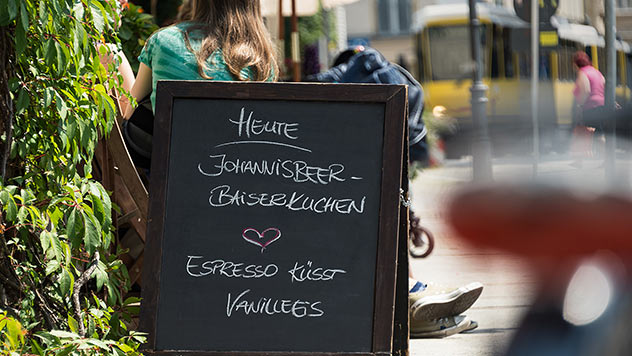 HEUTE
JOHANNISBEER-
BAISERKUCHEN
ESPRESSO KÜSST
VANILLEEIS